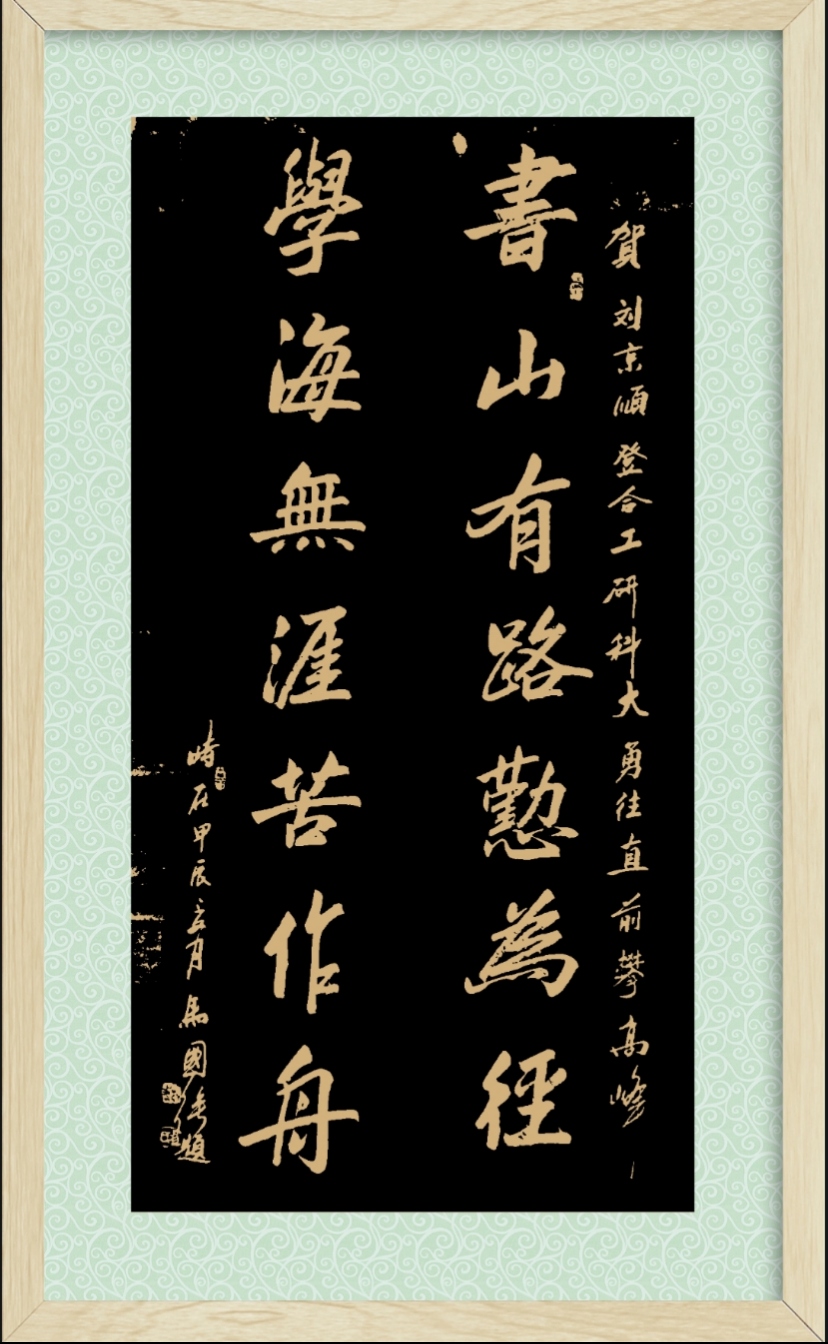 賀刘京順登合工研科大勇往直前攀高峰
書山有路懃為徑
學海無涯苦作舟
時在甲辰月馬國題